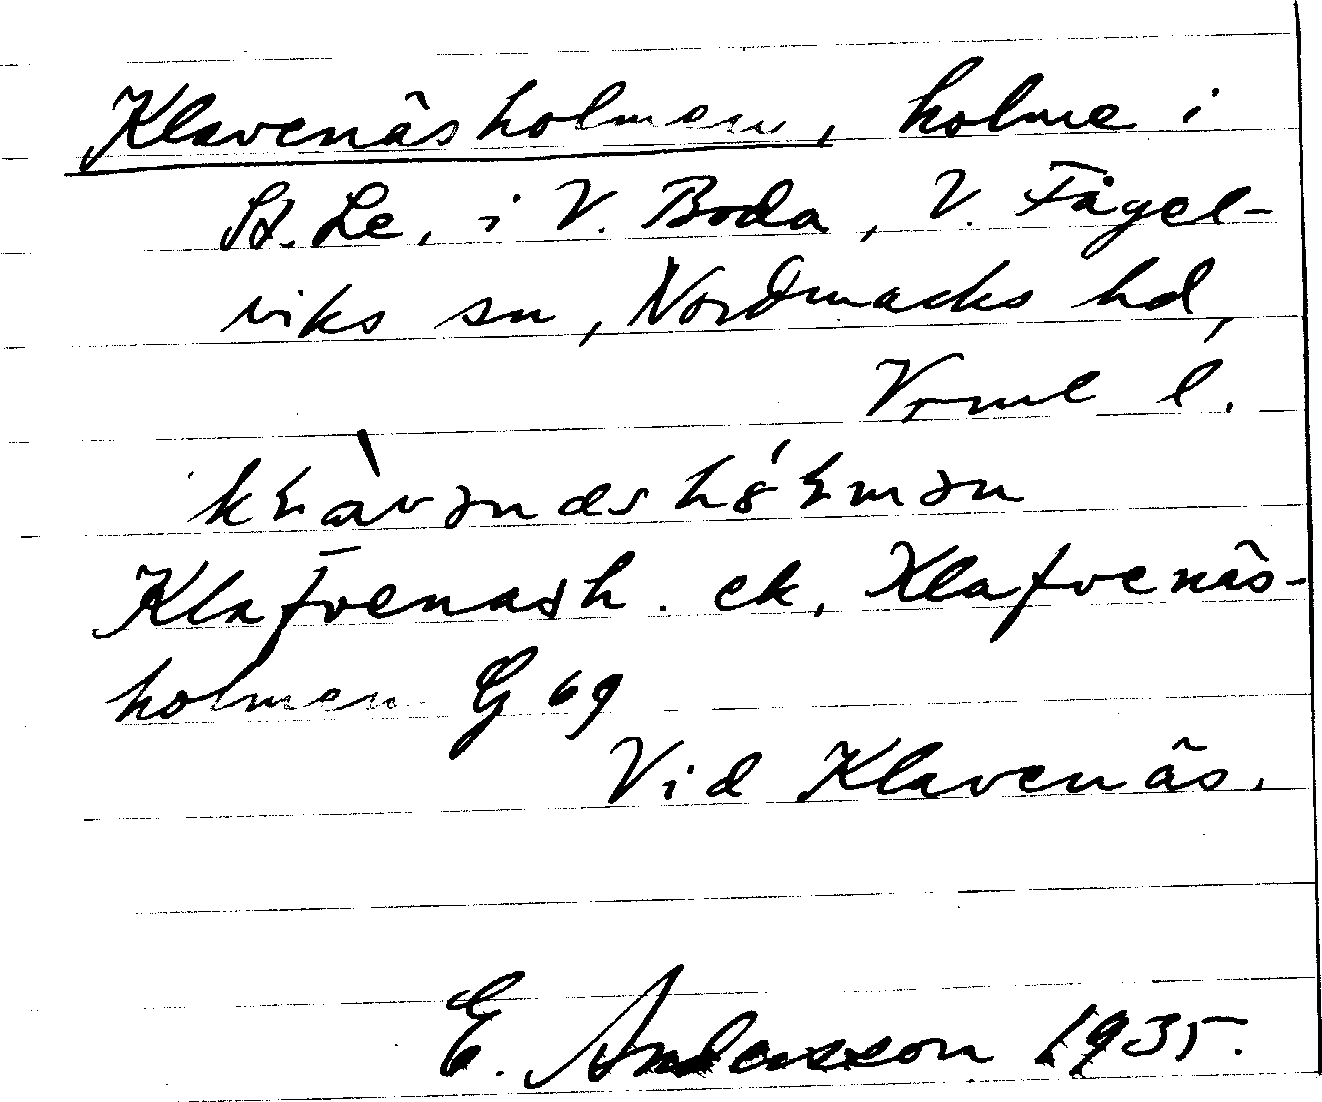 Klavenäsholmen, holme i
St. Le, i V. Boda, V. Fågel-
viks sn, Nordmarks hd,
Vrml l.
Klafvenash. ek, Klafvenäs-
holmen G 69
Vid Klavenäs.
E. Andersson 1935.